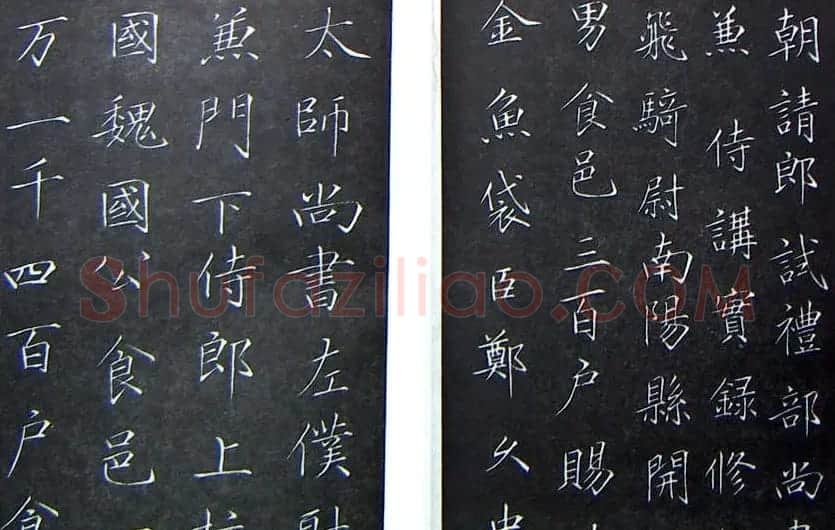 朝請郎試禮部尚
兼侍講實録修
飛騎尉南陽縣開
男食邑三百户賜
金魚袋臣鄭久
太師尚書左僕射
兼門下侍郎上柱
國魏國公食邑
万一千四百户食
Shufaziliao.COM